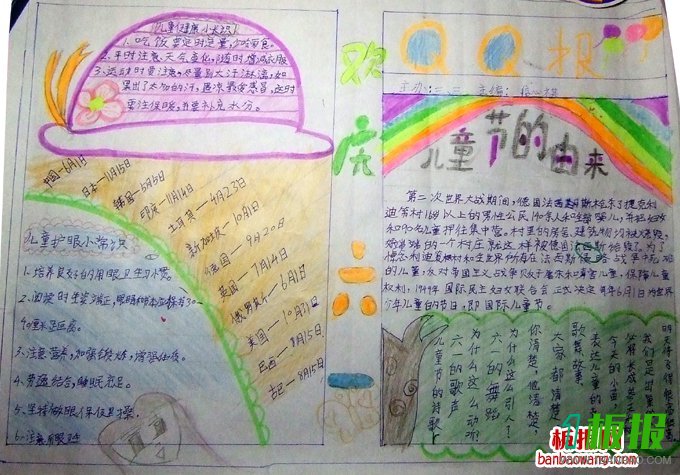 儿童健康小知识
1、吃饭要定时定量,少吃零食。
2、平时注意天气变化,随时增减衣服
3、运动时要注意,尽量别大汗淋漓,如
果出了太多的汗,
要注保暖,并要补充水分。
中国—6月1日
日本—11月15日
韩国—5月5日
印度—11月14日
土耳其—4月23日
新加坡—10月1日
德国—9月20日
英国—7月14日
俄罗斯—6月1日
美国—10月31日
巴西—8月15日
儿童护眼小常识
1、培养良好的用眼卫生习惯。
2、阅读时坐姿端正,眼睛和书本应保持30-
40厘米
3、注意营养,加强锻炼,增强体质。
4、劳逸结合,睡眠充足。
5、坚持做眼保健操。
欢
度
六
一
QQ报
主办: 主编:
儿童节的由来
第二次世界大战期间,德国法西斯枪杀了捷克利
迪策村16岁以上的男性公民140余人和全部婴儿,并把妇女
和90名儿童押往集中营。村里的房舍、建筑物均被烧毁,
好端端的一个村庄就这样被德国法西斯给毁了。为了
悼念利迪策村和全世界所有在法西斯侵略战争中死难
的儿童,反对帝国主义战争贩子屠杀和毒害儿童,保障儿童
权利,1949年国际民主妇女联合会正式决定每年6月1日为世界
少年儿童的节日,即国际儿童节。
儿童节的诗歌
六一的歌声
为什么这么动听?
六一的舞蹈
为什么这么引人?
你清楚,他清楚,
大家都清楚。
歌舞故事
表达儿童的
今天的小苗
板报网
banbaowang.com
板报